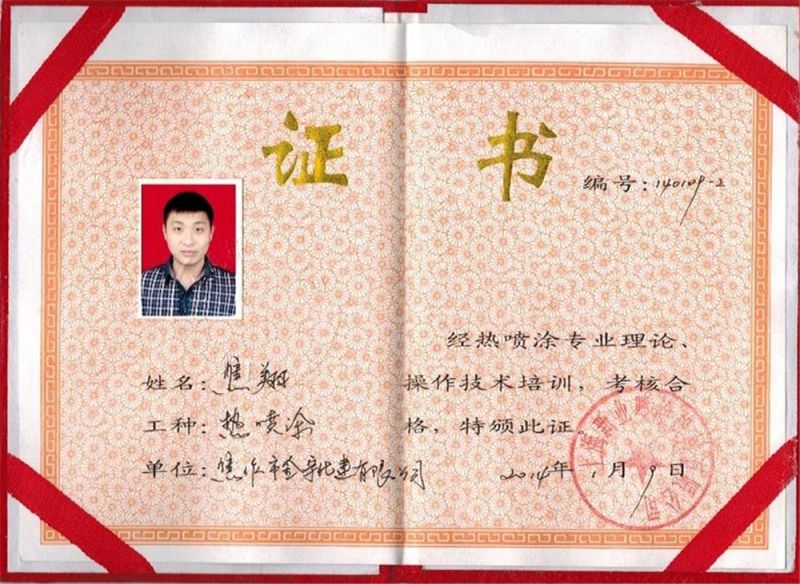 证 书
编号:140109-2
姓名:焦翔
工种:热喷涂
单位:焦作市金新化建有限公司
经热喷涂专业理论、
操作技术培训,考核合
格,特颁此证。
2014年1月9日